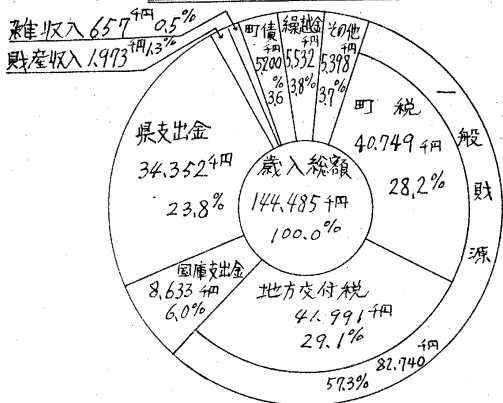 雑収入 657千円 0.5%
財産収入 1,973千円 1.3%
町債
5,200
千円
%
3.6
繰越金
千円
5,532
3.8%
その他
千円
5,398
3.7%
町税
40.749千円
28.2%
一般財源
県支出金
34.352千円
23.8%
歳入総額
144.485千円
100.0%
国庫支出金
8,633千円
6.0%
地方交付税
41.991千円
29.1%
82.740千円
57.3%